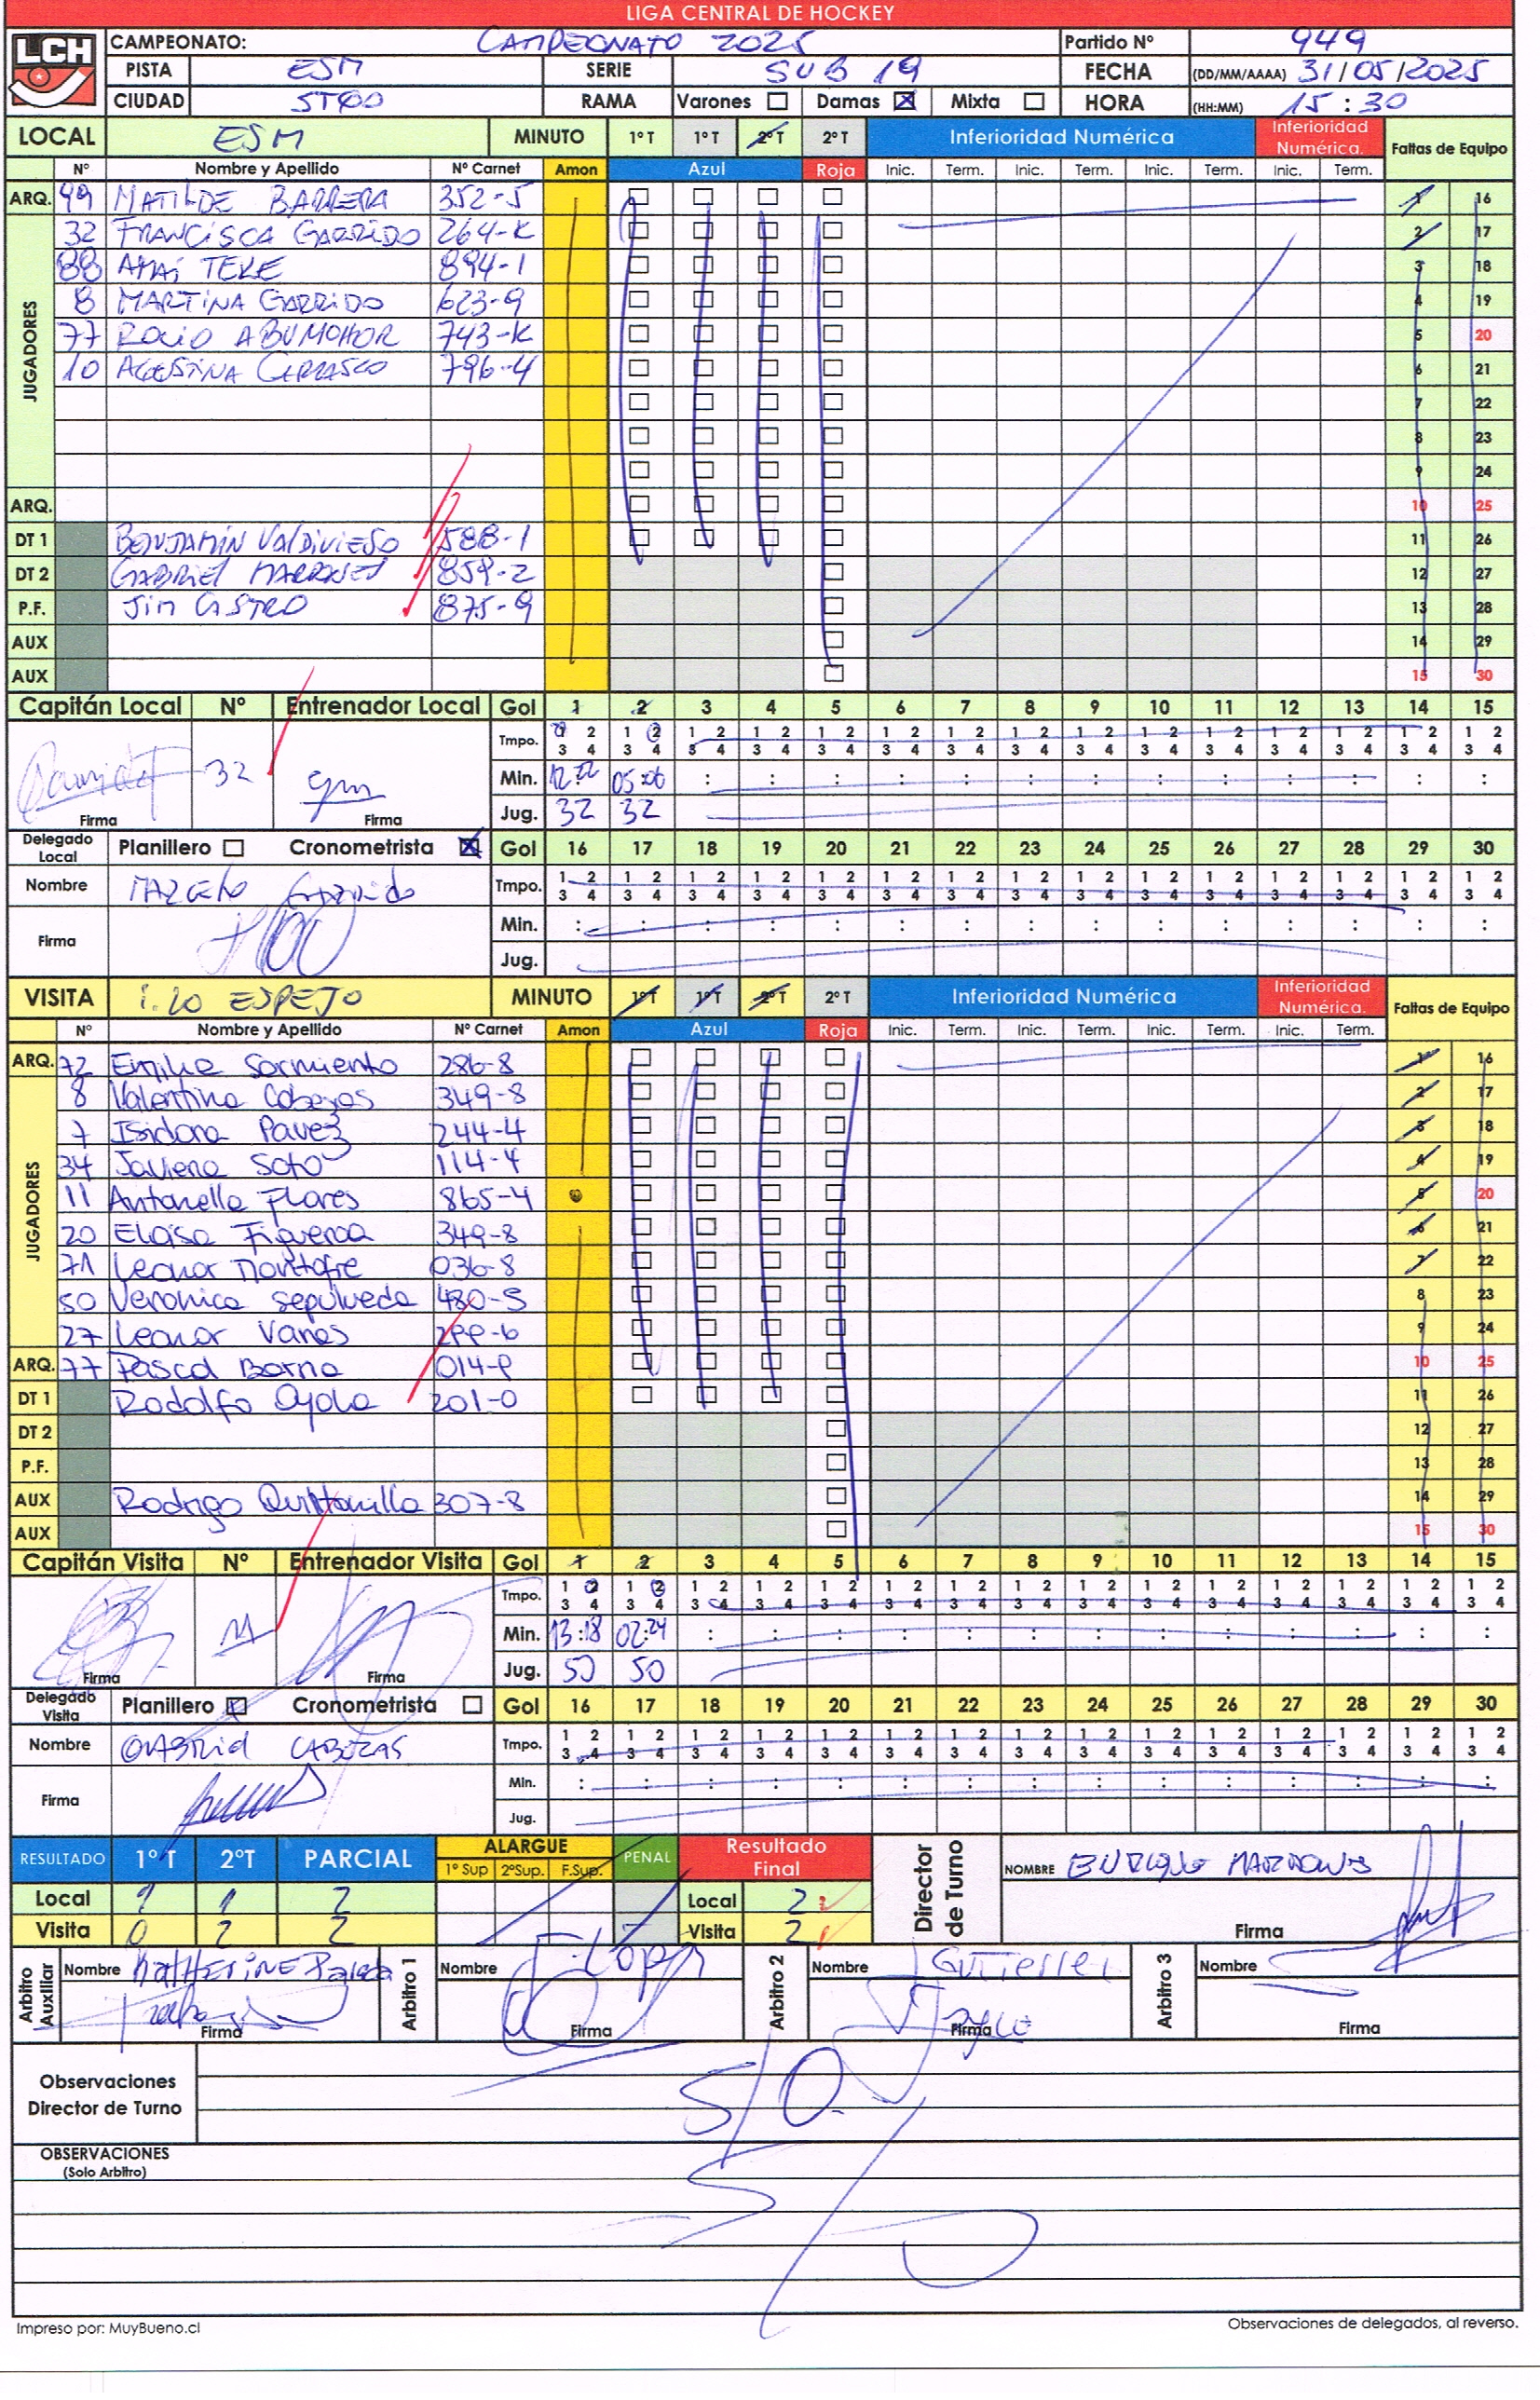 LIGA CENTRAL DE HOCKEY
LCH
CAMPEONATO: CAMPEONATO 2025 Partido Nº 949
PISTA ESM SERIE SUB 19 FECHA (DD/MM/AAAA) 31/05/2025
CIUDAD STGO RAMA Varones Damas Mixta HORA (HH:MM) 15:30
LOCAL ESM MINUTO 1º T 1º T 2º T 2º T Inferioridad Numérica Inferioridad Numérica. Faltas de Equipo
Nº Nombre y Apellido Nº Carnet Amon Azul Roja Inic. Term. Inic. Term. Inic. Term. Inic. Term.
ARQ. 99 MATILDE BARRERA 352-5 1 16
JUGADORES
32 FRANCISCA GARRIDO 264-K 2 17
88 AMAI TEKE 894-1 3 18
8 MARTINA GARRIDO 623-9 4 19
77 ROCIO ABUMOHOR 743-K 5 20
10 AGUSTINA CARRASCO 796-4 6 21
7 22
8 23
9 24
ARQ. 10 25
DT 1 BENJAMÍN VALDIVIESO 588-1 11 26
DT 2 GABRIEL MARRONES 859-2 12 27
P.F. JIM CASTRO 875-9 13 28
AUX 14 29
AUX 15 30
Capitán Local Nº Entrenador Local Gol 1 2 3 4 5 6 7 8 9 10 11 12 13 14 15
Tmpo. 1 2 3 4 1 2 3 4 1 2 3 4 1 2 3 4 1 2 3 4 1 2 3 4 1 2 3 4 1 2 3 4 1 2 3 4 1 2 3 4 1 2 3 4 1 2 3 4 1 2 3 4 1 2 3 4 1 2 3 4
32 Min. 12:22 05:06 : : : : : : : : : : : : :
Firma Firma Jug. 32 32
Delegado Local Planillero Cronometrista Gol 16 17 18 19 20 21 22 23 24 25 26 27 28 29 30
Nombre MARCELO Garrido Tmpo. 1 2 3 4 1 2 3 4 1 2 3 4 1 2 3 4 1 2 3 4 1 2 3 4 1 2 3 4 1 2 3 4 1 2 3 4 1 2 3 4 1 2 3 4 1 2 3 4 1 2 3 4 1 2 3 4 1 2 3 4
Firma Min. : : : : : : : : : : : : : : :
Jug.
VISITA I. LO ESPEJO MINUTO 1º T 1º T 2º T 2º T Inferioridad Numérica Inferioridad Numérica. Faltas de Equipo
Nº Nombre y Apellido Nº Carnet Amon Azul Roja Inic. Term. Inic. Term. Inic. Term. Inic. Term.
ARQ. 72 Emilia Sarmiento 286-8 1 16
JUGADORES
8 Valentina Cabezas 349-8 2 17
7 Isidora Pavez 244-4 3 18
34 Javiera Soto 114-4 4 19
11 Antonella Flores 865-4 5 20
20 Eloisa Figueroa 349-8 6 21
71 Leonor Montofre 036-8 7 22
50 Veronica Sepulveda 480-5 8 23
27 Leonor Vanes 299-6 9 24
ARQ. 77 Pascal Borne 014-P 10 25
DT 1 Rodolfo Ayola 201-0 11 26
DT 2 12 27
P.F. 13 28
AUX Rodrigo Quintanilla 307-8 14 29
AUX 15 30
Capitán Visita Nº Entrenador Visita Gol 1 2 3 4 5 6 7 8 9 10 11 12 13 14 15
Tmpo. 1 2 3 4 1 2 3 4 1 2 3 4 1 2 3 4 1 2 3 4 1 2 3 4 1 2 3 4 1 2 3 4 1 2 3 4 1 2 3 4 1 2 3 4 1 2 3 4 1 2 3 4 1 2 3 4 1 2 3 4
11 Min. 13:18 02:24 : : : : : : : : : : : : :
Firma Firma Jug. 50 50
Delegado Visita Planillero Cronometrista Gol 16 17 18 19 20 21 22 23 24 25 26 27 28 29 30
Nombre GABRIEL CABEZAS Tmpo. 1 2 3 4 1 2 3 4 1 2 3 4 1 2 3 4 1 2 3 4 1 2 3 4 1 2 3 4 1 2 3 4 1 2 3 4 1 2 3 4 1 2 3 4 1 2 3 4 1 2 3 4 1 2 3 4 1 2 3 4
Firma Min. : : : : : : : : : : : : : : :
Jug.
RESULTADO 1ºT 2ºT PARCIAL ALARGUE 1º Sup 2ºSup. F.Sup. PENAL Resultado Final Director de Turno NOMBRE ENRIQUE MARRONES
Local 1 1 2 Local 2
Visita 0 2 2 Visita 2 Firma
Arbitro Auxiliar Nombre KATHERINE Parra Arbitro 1 Nombre F. Lopez Arbitro 2 Nombre J Gutierrez Arbitro 3 Nombre
Firma Firma Firma Firma
Observaciones Director de Turno S/O.
OBSERVACIONES
(Solo Arbitro)
S/O
Impreso por: MuyBueno.cl Observaciones de delegados, al reverso.